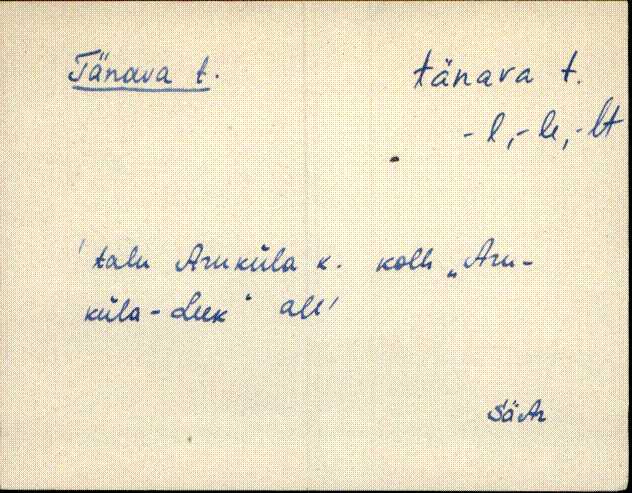 Tänava t.
tänava t.
-l, -le, -lt
'talu Aruküla k. kolh „Aru-
küla-Leek" all'
SäAr